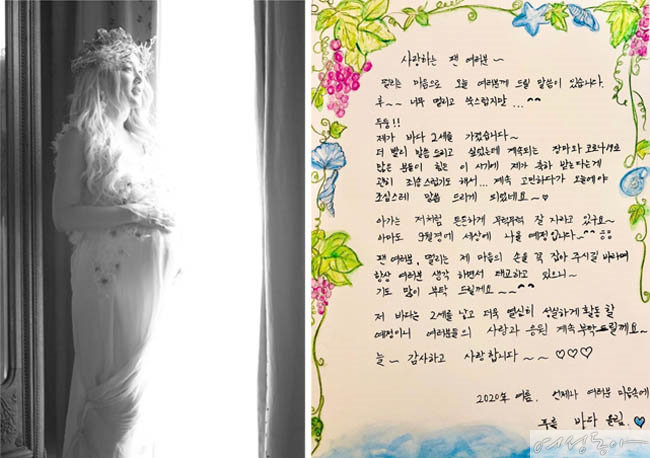 사랑하는 팬 여러분~
떨리는 마음으로 오늘 여러분께 드릴 말씀이 있습니다.
후~~ 너무 떨리고 쑥스럽지만 ...^^
두둥!!
제가 바다 2세를 가졌습니다~
더 빨리 말씀 드리고 싶었는데 계속되는 장마와 코로나19로
많은 분들이 힘든 이 시기에 제가 축하 받는다는게
괜히 조심스럽기도 해서... 계속 고민하다가 오늘에야
조심스레 말씀 드리게 되었네요~♡
아가는 저처럼 튼튼하게 무럭무럭 잘 자라고 있구요~
아마도 9월경에 세상에 나올 예정입니다~^^
팬 여러분, 떨리는 제 마음의 손을 꼭 잡아 주시길 바라며
항상 여러분 생각 하면서 태교하고 있으니~
기도 많이 부탁 드릴께요~~^^
저 바다는 2세를 낳고 더욱 열심히 성실하게 활동 할
예정이니 여러분들의 사랑과 응원 계속 부탁드릴께요~
늘~ 감사하고 사랑합니다~~♡♡♡
2020년 여름. 언제나 여러분 마음속에
푸를 바다 올림.
여성동아